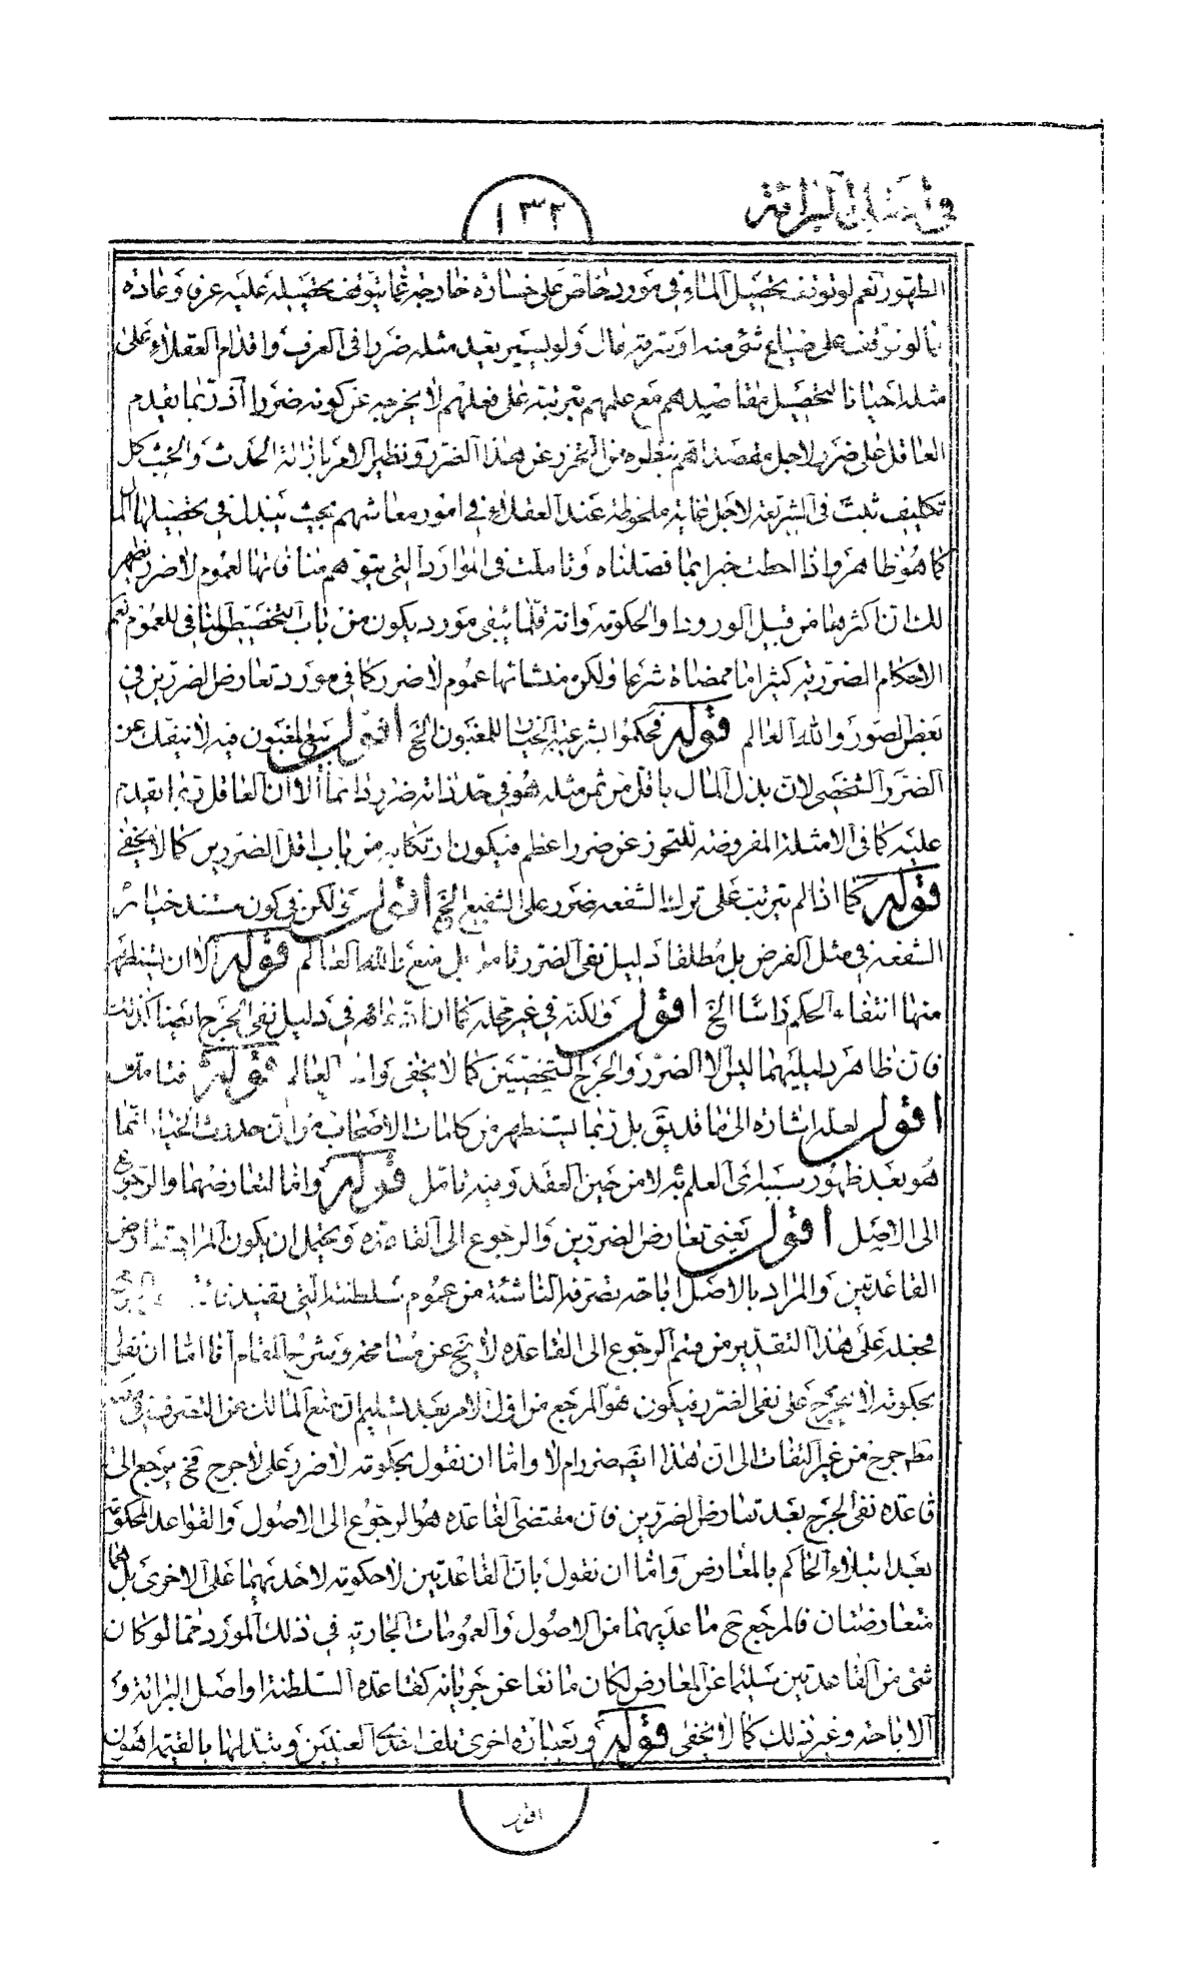 في اصل البرائة
١٣٢
الطهور نعم لو توقف تحصيل الماء في مورد خاص على خسارة خارجة عما يتوقف تحصيله عليه عرفا وعادة
كما لو توقف على ضياع شئ منه او سرقة مال ولو يسير يعد مثله ضررا في العرف واقدام العقلاء على
مثله احيانا لتحصيل مقاصدهم مع علمهم بترتبه على فعلهم لا يخرجه عن كونه ضررا اذ ربما يقدم
العاقل على ضرر لاجل مقصد اهم بنظره من التحرز عن هذا الضرر ونظير الامر بازالة الحدث والخبث كل
تكليف ثبت في الشريعة لاجل غاية ملحوظة عند العقلاء في امور معاشهم بحيث يبذل في تحصيلها المال
كما هو ظاهر واذا احطت خبرا بما فصلناه وتاملت في الموارد التي يتوهم منافاتها لعموم لا ضرر يظهر
لك ان اكثرها من قبيل الورود او الحكومة وانه قلما يبقى مورد يكون من باب التخصيص المنافي للعموم نعم
الاحكام الضررية كثيرا ما ممضاة شرعا ولكن منشائها عموم لا ضرر كما في مورد تعارض الضررين في
بعض الصور والله العالم قوله فحكموا بشرعية الخيار للمغبون الخ اقول بيع المغبون فيه لا ينفك عن
الضرر الشخصي لان بذل المال باقل من ثمن مثله هو في حد ذاته ضرر دائما الا ان العاقل ربما يقدم
عليه كما في الامثلة المفروضة للتحرز عن ضرر اعظم فيكون ارتكابه من باب اقل الضررين كما لا يخفى
قوله كما اذا لم يترتب على ترك الشفعة ضرر على الشفيع الخ اقول نعم لكن في كون مستند خيار
الشفعة في مثل الفرض بل مطلقا دليل نفي الضرر تامل بل منع والله العالم قوله الا ان يستظهر
منها انتفاء الحكم راسا الخ اقول ولكنه في غير محله كما ان في دليل نفي الحرج ايضا كذلك
فان ظاهر دليليهما ليس الا الضرر والحرج الشخصيين كما لا يخفى والله العالم قوله فتامل
اقول لعله اشارة الى ما قد سبق بل ربما يستظهر من كلمات الاصحاب من ان حدوث الخيار انما
هو بعد ظهور سببه اى العلم به لا من حين العقد وفيه تامل قوله واما لتعارضهما والرجوع
الى الاصل اقول يعني تعارض الضررين والرجوع الى القاعدة ويحتمل ان يكون المراد تعارض
القاعدتين والمراد بالاصل اباحة تصرفه الناشئة من عموم سلطنته التي يقتضيها
فجعله على هذا التقدير من قسم الرجوع الى القاعدة لا يخ عن مسامحة وشرح المقام انا اما ان نقول
بحكومة لا حرج على نفي الضرر فيكون هو المرجع من اول الامر بعد تسليم ان منع المالك عن التصرف في ملكه
مطم حرج من غير التفات الى ان هذا ايضه ضرر ام لا واما ان نقول بحكومة لا ضرر على لا حرج فح يرجع الى
قاعدة نفي الحرج بعد تعارض الضررين فان مقتضى القاعدة هو الرجوع الى الاصول والقواعد المحكومة
بعد ابتلاء الحاكم بالمعارض واما ان نقول بان القاعدتين لا حكومة لاحديهما على الاخرى بل هما
متعارضتان فالمرجع ح ما عديهما من الاصول والعمومات الجارية في ذلك المورد مما لو كان
شئ من القاعدتين سليما عن المعارض لكان مانعا عن جريانه كقاعدة السلطنة او اصل البرائة و
الاباحة وغير ذلك كما لا يخفى قوله وبعبارة اخرى تلف احد العينين وتبدلها بالقيمة اهون
اقول